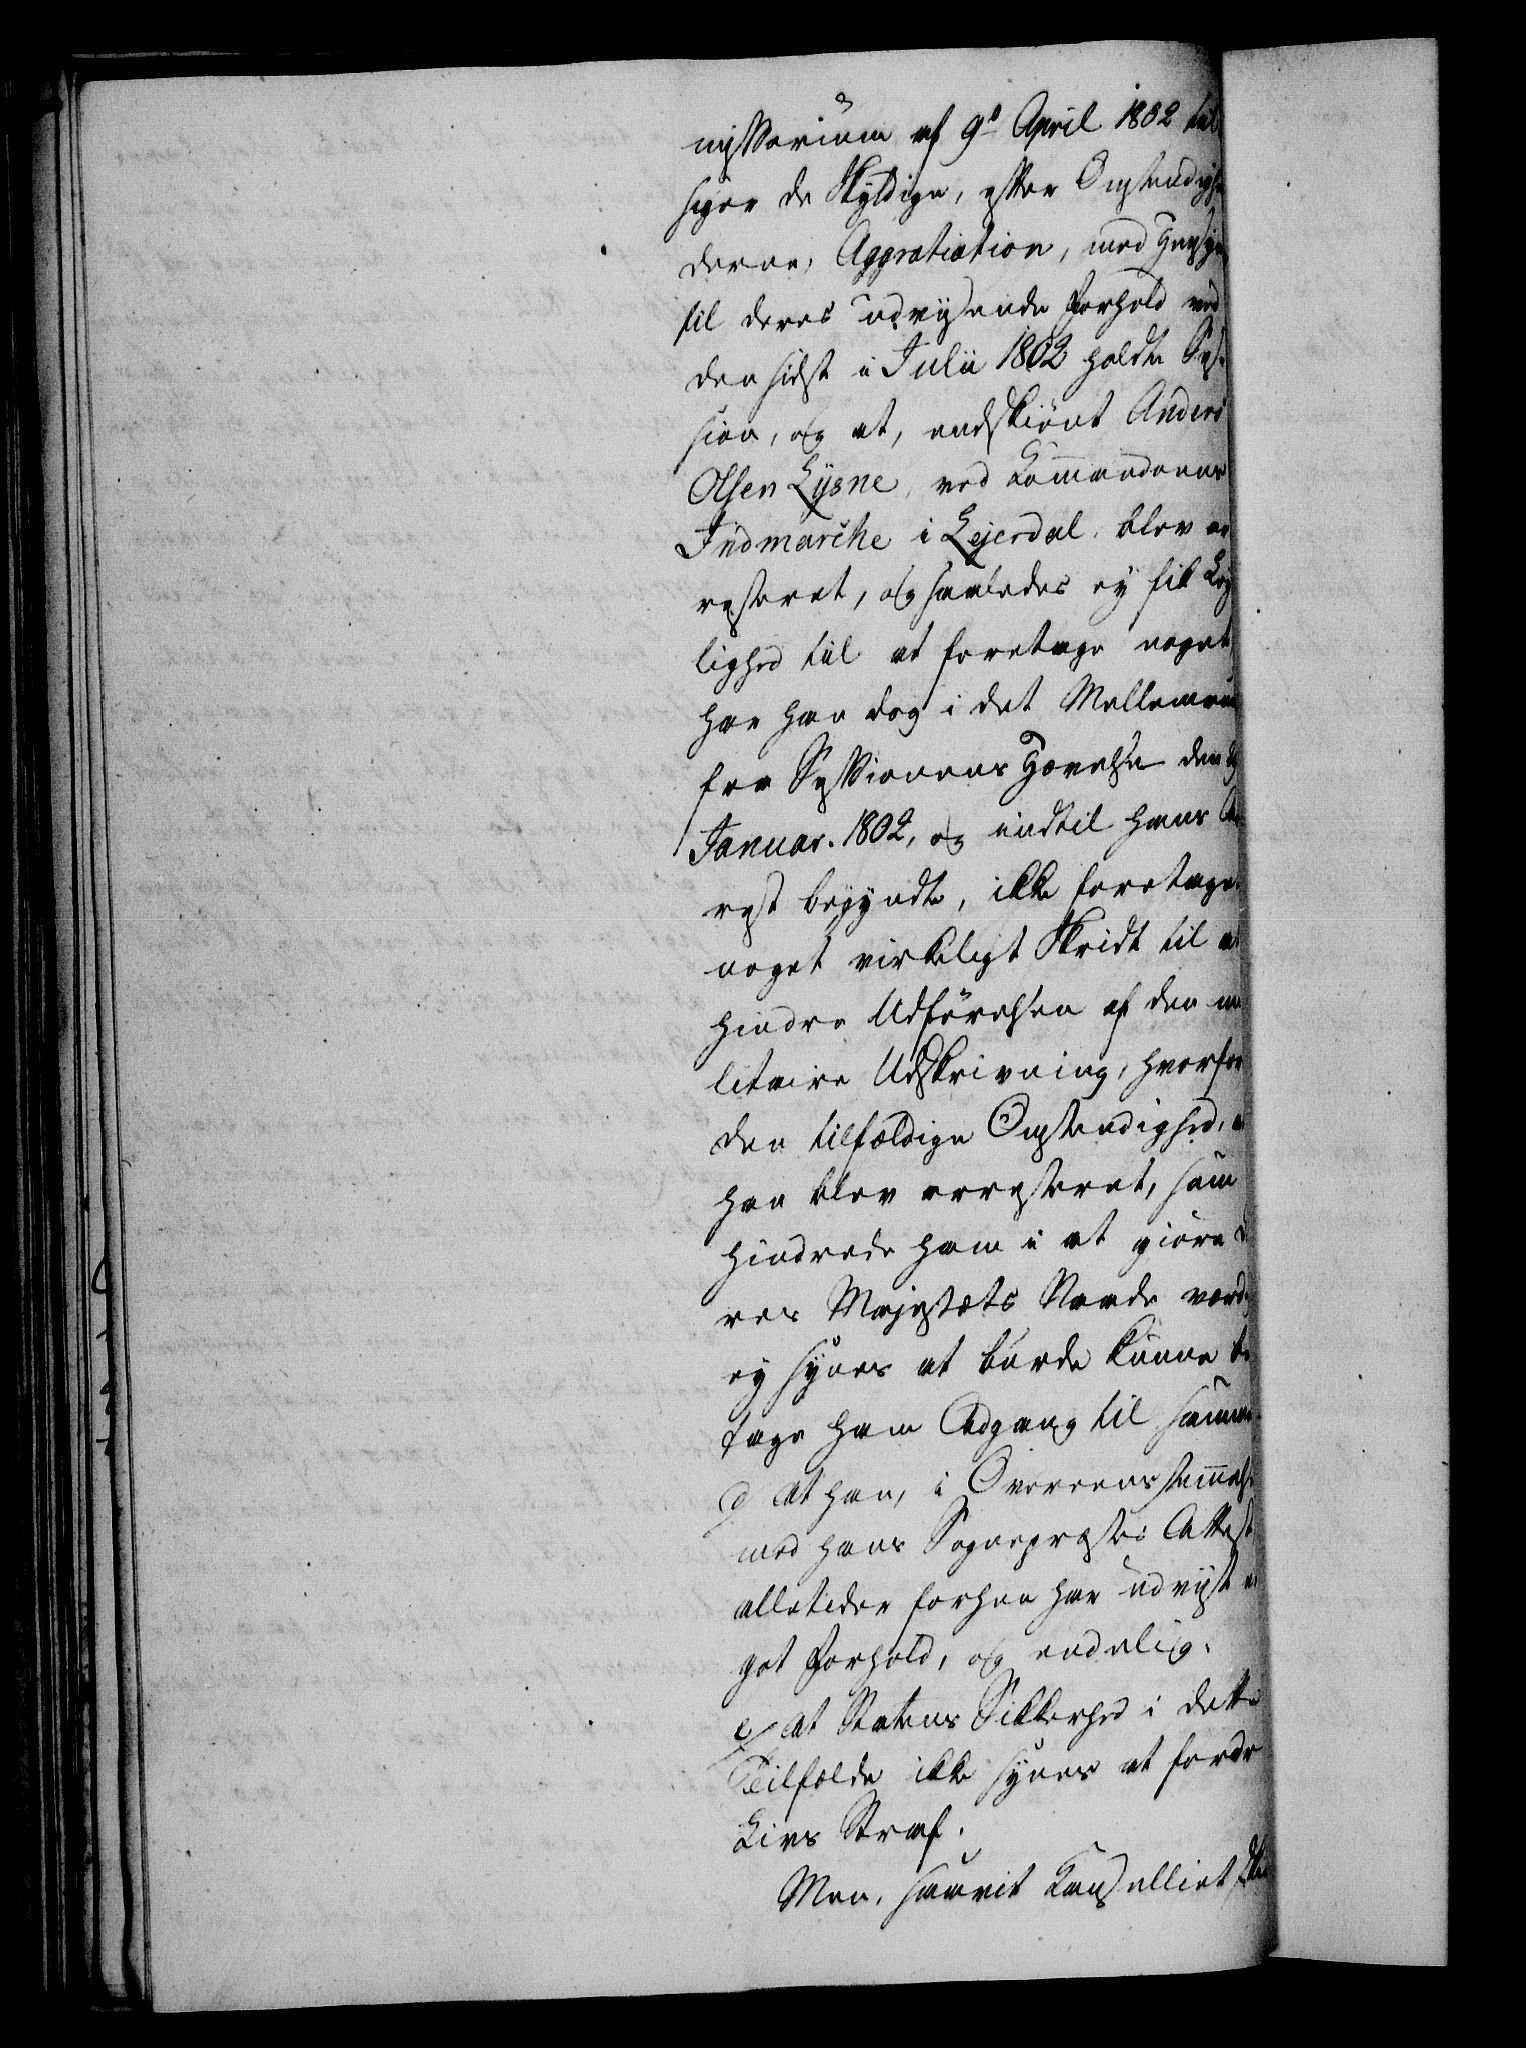 missorium af 9de April 1802 til
siger de skyldige, efter Omstændighe
derne, Aggratiation, med Hensyn
til deres udvisende Forhold ved
den sidst i Julii 1802 holdte Ses-
sion, og at, endskiönt Anders
Olsen Lysne, ved Commandoens
Indmarche i Lejerdal, blev ar
resteret, og saaledes ej fik Lej
lighed til at foretage noget,
har han dog i det Mellemrum
fra Sessionens Hævelse den
Januar. 1802, og indtil hans Ar
rest begyndte, ikke foretaget
noget virkeligt Skridt til at
hindre Udförelsen af den mi
litaire Udskrivning, hvorfor
den tilfældige Omstændighed, at
han blev arresteret, som
hindrede ham i at giöre De
res Majestæts Naade værdig
ej synes at burde kunne be
tage ham Adgang til samme.
d) at han, i Overeensstemmelse
med hans Sognepræstes Attest
alletider forhen har udviist et
got Forhold, og endelig.
e) at Statens Sikkerhed i dette
Tilfælde ikke synes at fordre
Livs Straf.
Men, saavit Cancelliet skiön